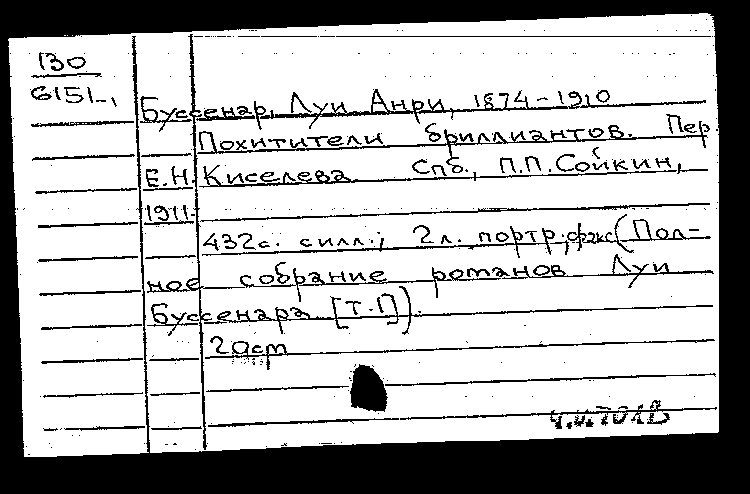 130
6151-1
Буссенар, Луи Анри, 1874-1910
Похитители бриллиантов. Пер.
Е.Н. Киселева Спб., П.П. Сойкин,
1911.
432с. силл.; 2л. портр., факс (Пол-
ное собрание романов Луи
Буссенара [т.П])